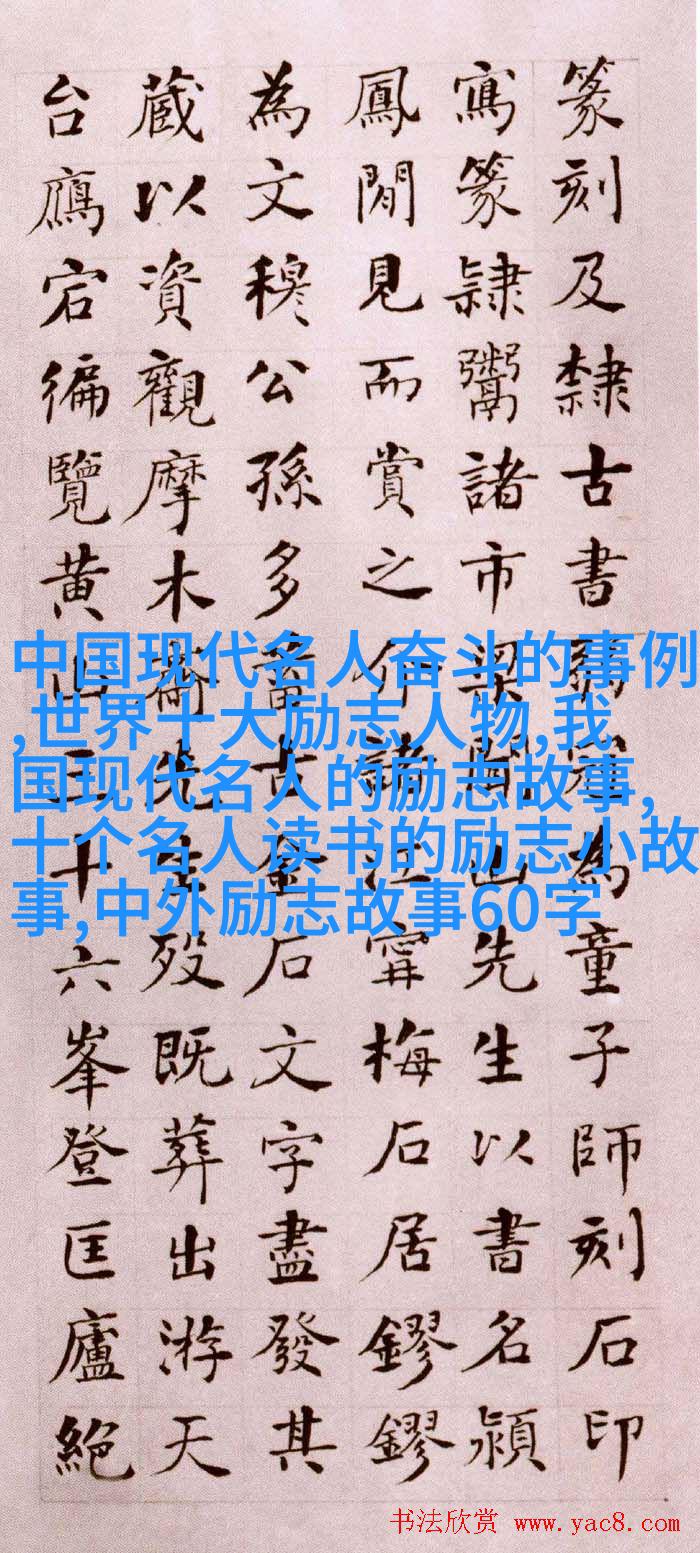 篆刻及隷古書弱冠為童子師刻石印
寫篆隷鬻諸市梁聞山先生以書名潁
鳳閒見而賞之介諸江寧梅石居鏐鏐
為文穆公孫多蓄古金石文字盡發其
藏以資觀摩木齋先生歿既葬出游天
台鴈宕徧覽黃山三十六峯登匡廬絕
中国现代名人奋斗的事例
,世界十大励志人物,我
国现代名人的励志故事,
十个名人读书的励志小故
事,中外励志故事60字
书法欣赏 www.yac8.com